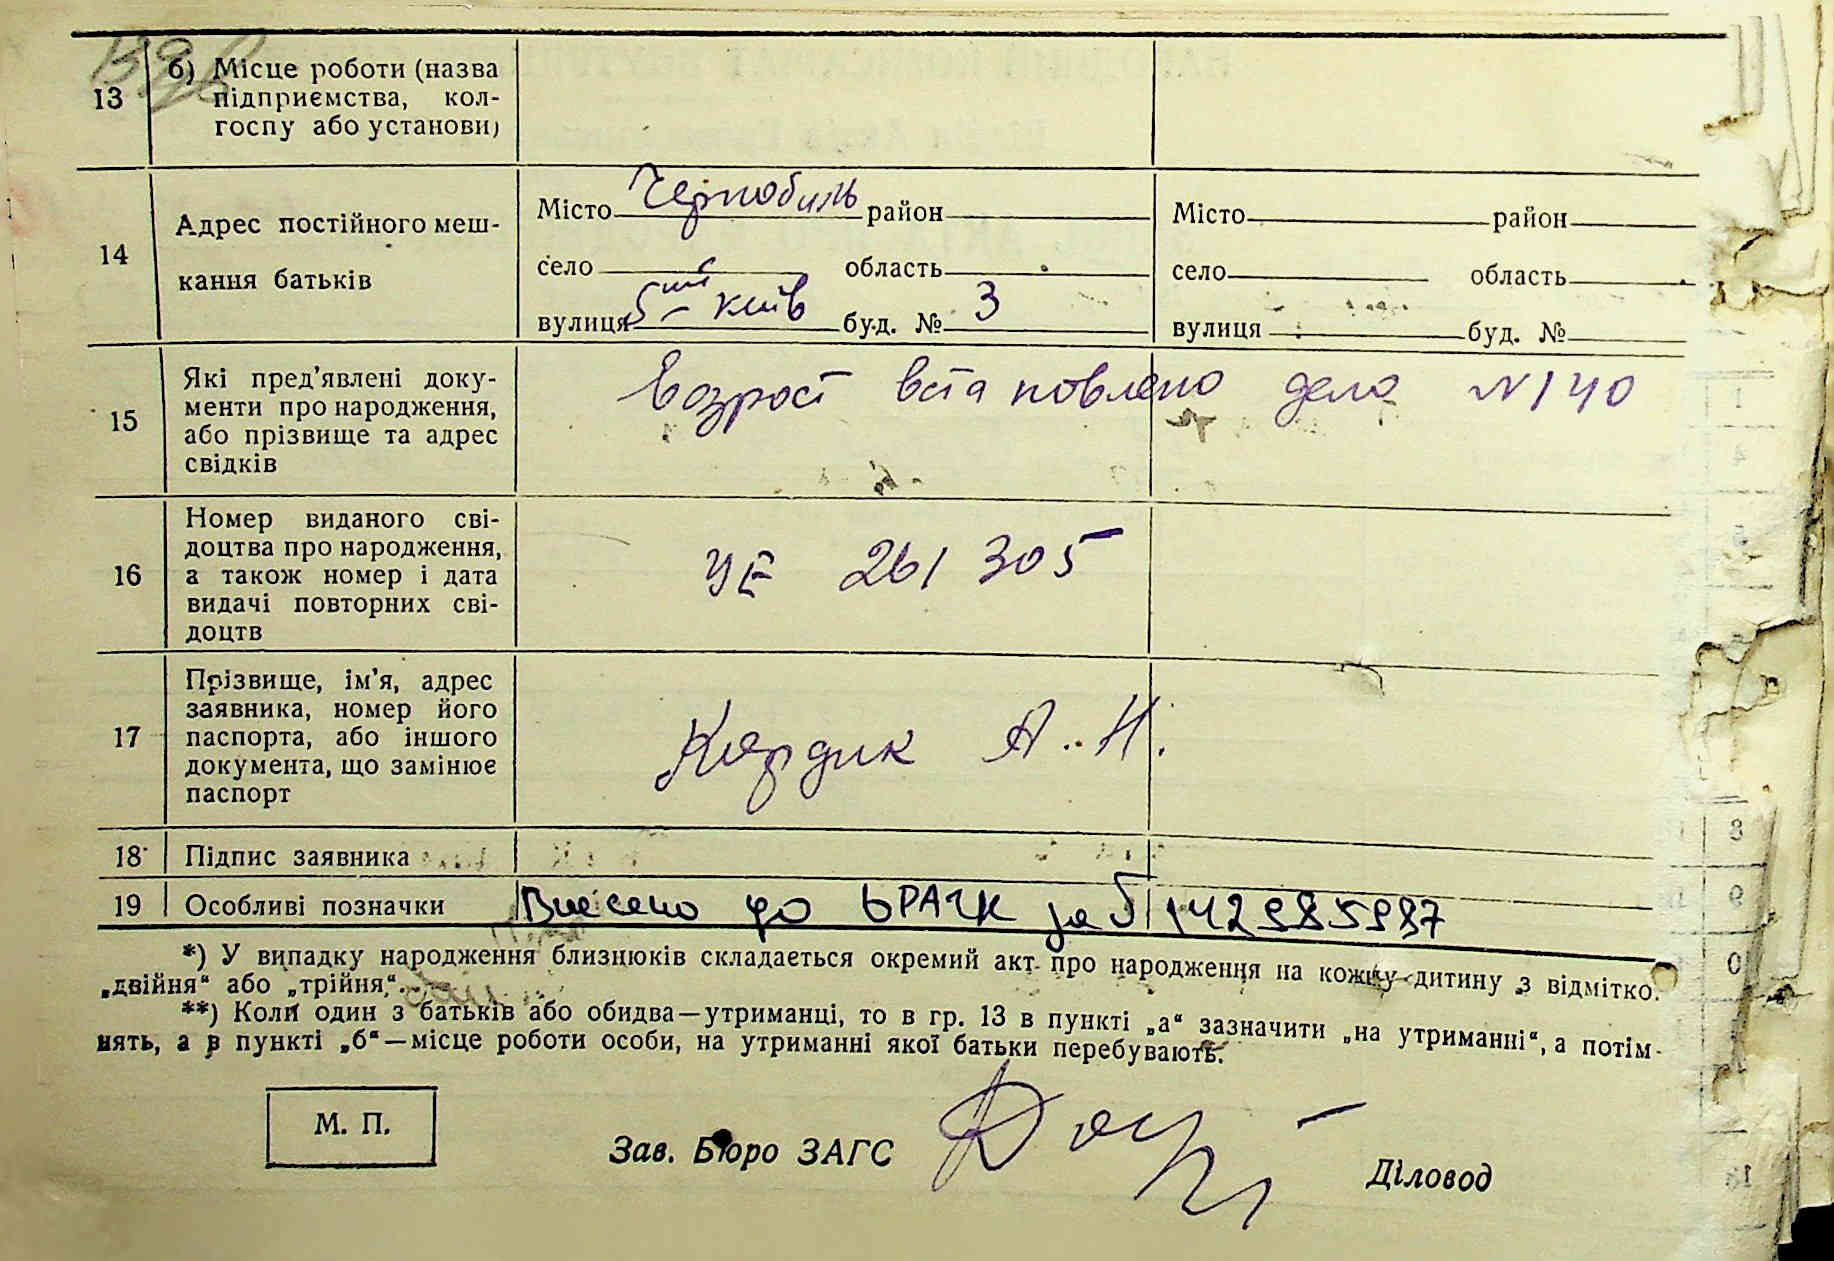 13 б) Місце роботи (назва
підприємства, кол-
госпу або установи)
14 Адрес постійного меш-
кання батьків
Місто Чернобиль район
село область
вулиця 5ий Київ буд. № 3
Місто район
село область
вулиця буд. №
15 Які пред’явлені доку-
менти про народження,
або прізвище та адрес
свідків
Возрост встановлено дело N 140
16 Номер виданого сві-
доцтва про народження,
а також номер і дата
видачі повторних сві-
доцтв
УЕ 261305
17 Прізвище, ім’я, адрес
заявника, номер його
паспорта, або іншого
документа, що замінює
паспорт
Кардик А. Н.
18 Підпис заявника
19 Особливі позначки Внесено до ДРАЦС за
*) У випадку народження близнюків складається окремий акт про народження на кожну дитину з відмітко.
„двійня“ або „трійня“.
**) Коли один з батьків або обидва—утриманці, то в гр. 13 в пункті „а“ зазначити „на утриманні“, а потім-
нять, а в пункті „б“—місце роботи особи, на утриманні якої батьки перебувають.
М. П.
Зав. Бюро ЗАГС
Діловод